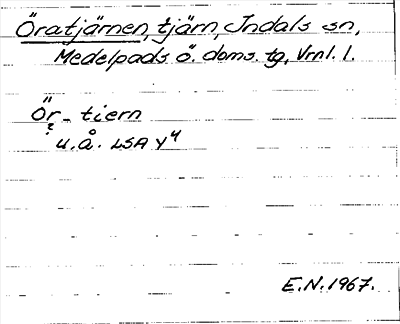 Öratjärnen, tjärn, Indals sn,
Medelpads ö. doms. tg, Vrnl. l.
Ör - tiern
u.å. LSA Y4
E.N. 1967.